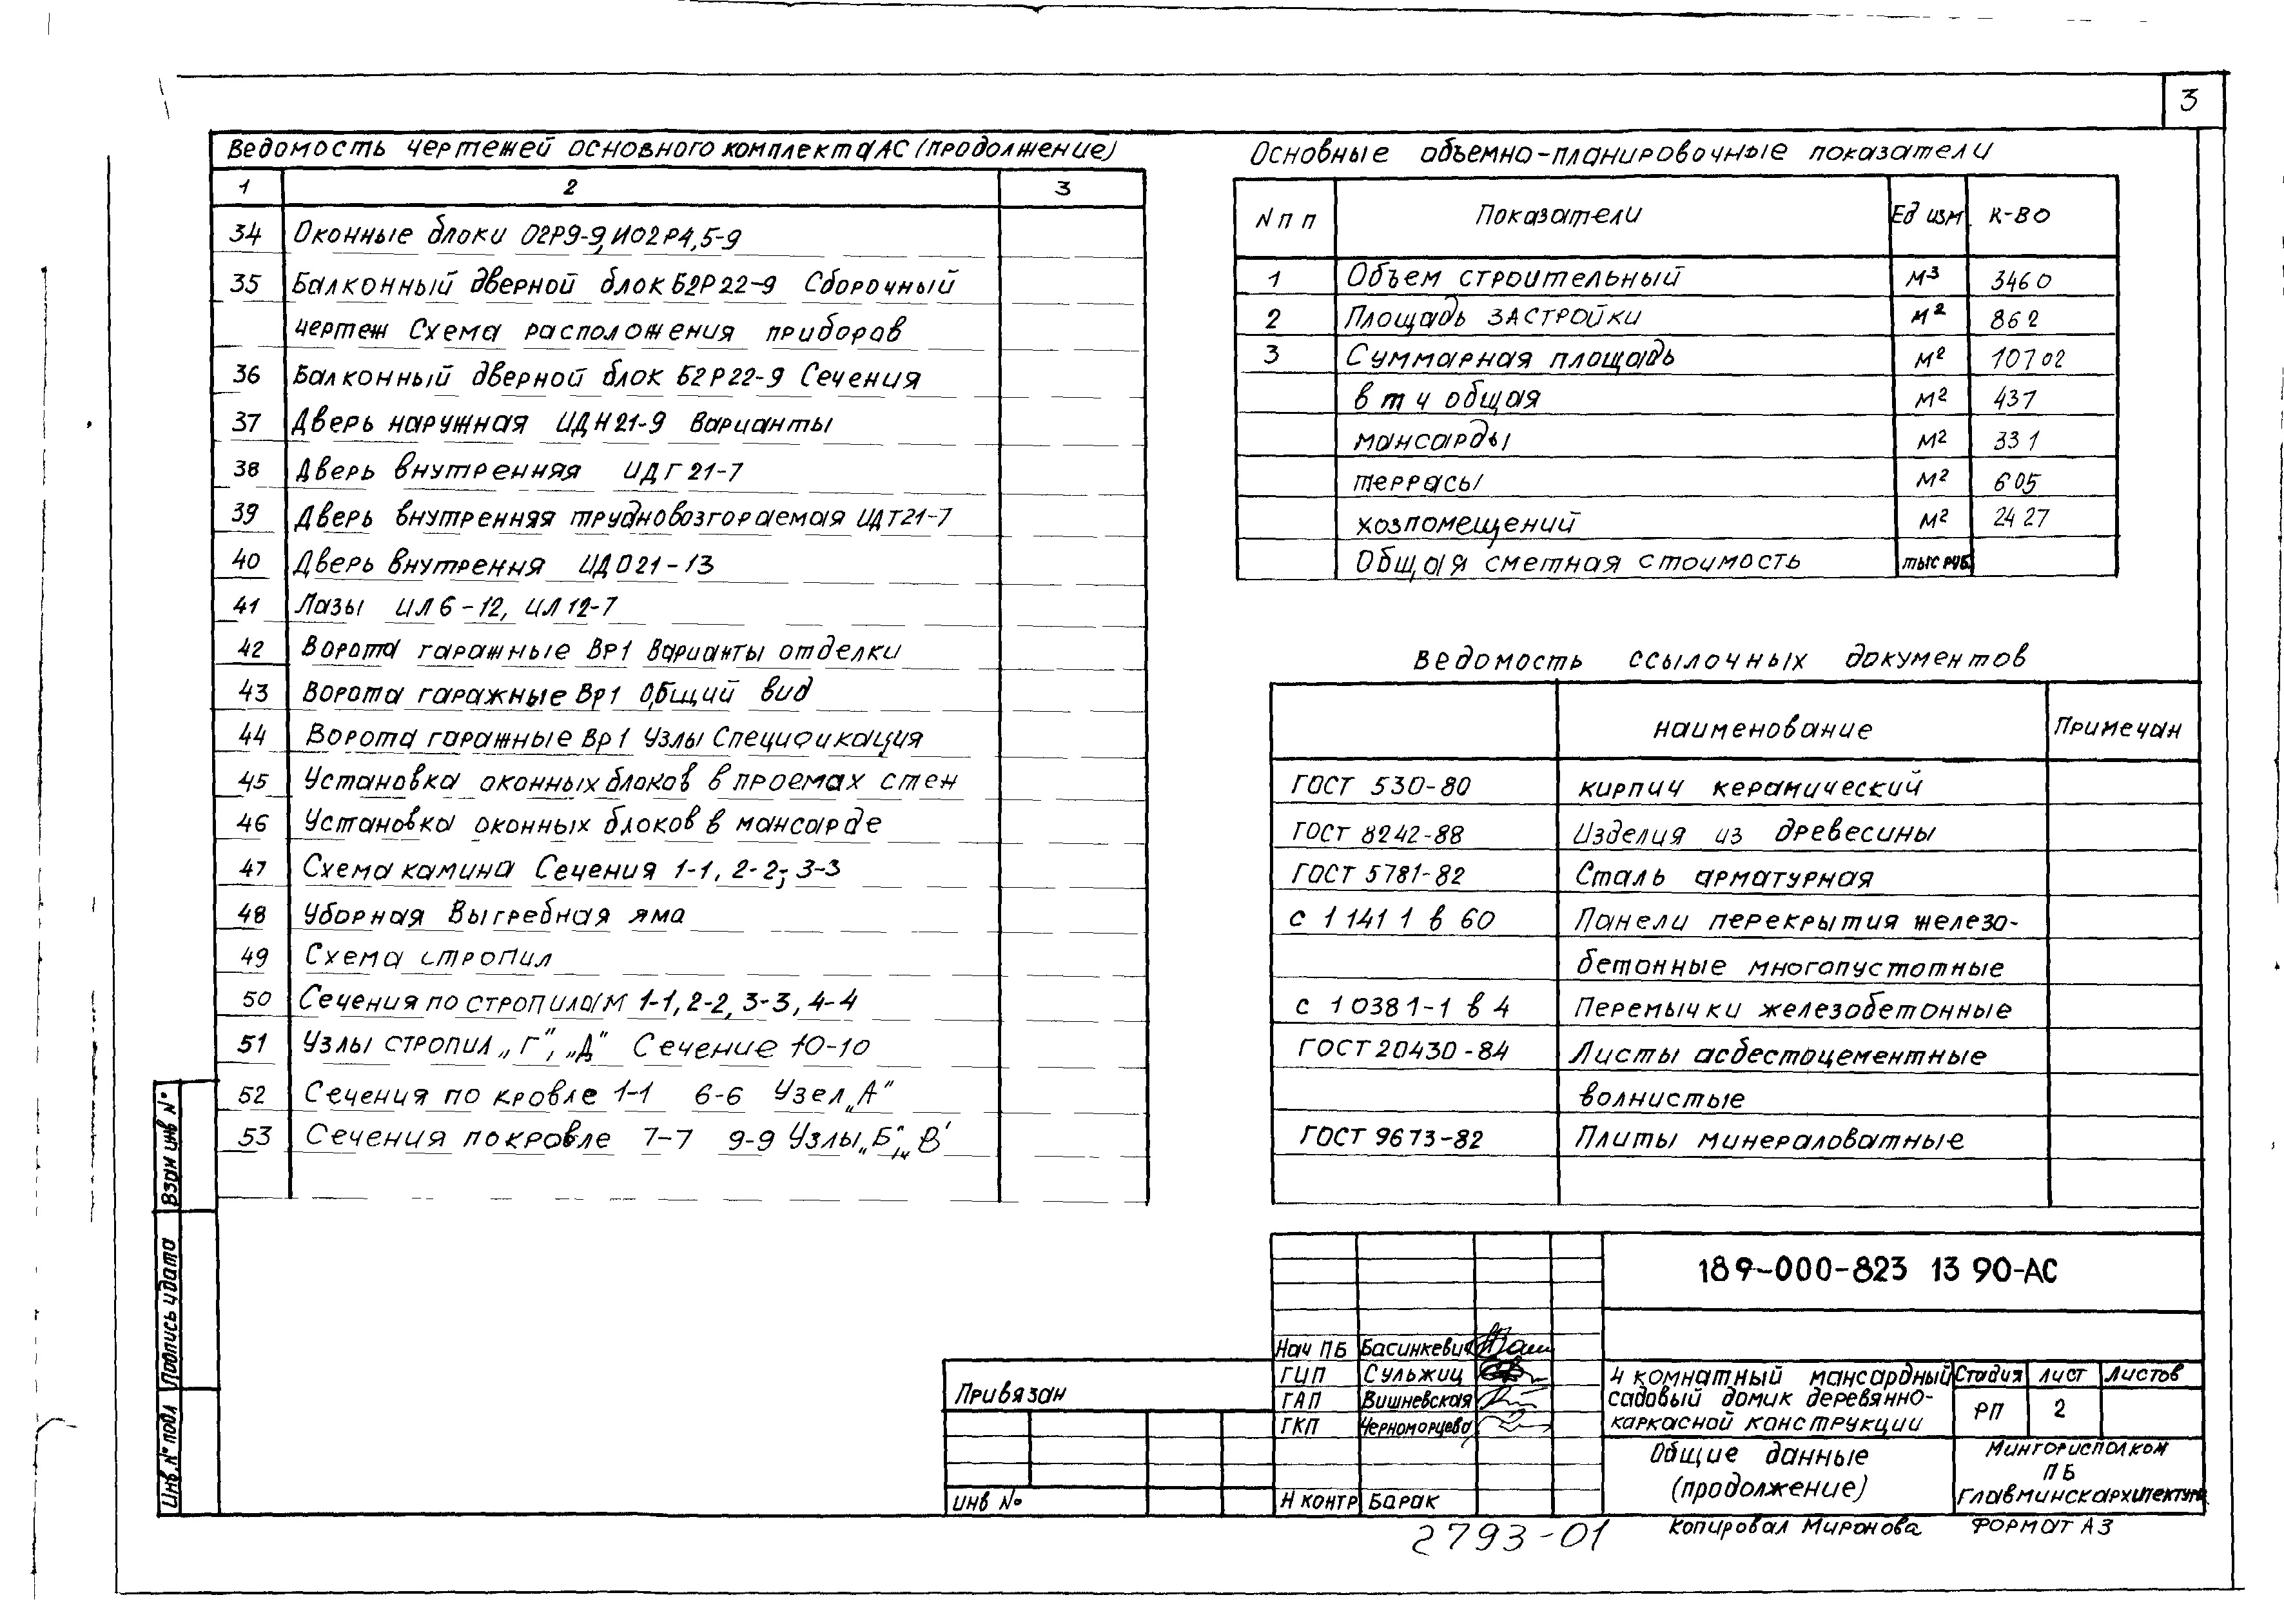 3
Ведомость чертежей основного комплекта АС (продолжение)
1 2 3
34 Оконные блоки О2Р9-9, ИО2Р4,5-9
35 Балконный дверной блок Б2Р22-9 Сборочный
чертеж Схема расположения приборов
36 Балконный дверной блок Б2Р22-9 Сечения
37 Дверь наружная ИДН21-9 Варианты
38 Дверь внутренняя ИДГ21-7
39 Дверь внутренняя трудновозгораемая ИДТ21-7
40 Дверь внутрення ИДО21-13
41 Лазы ИЛ6-12, ИЛ12-7
42 Ворота гаражные Вр1 Варианты отделки
43 Ворота гаражные Вр1 Общий вид
44 Ворота гаражные Вр1 Узлы Спецификация
45 Установка оконных блоков в проемах стен
46 Установка оконных блоков в мансарде
47 Схема камина Сечения 1-1, 2-2; 3-3
48 Уборная Выгребная яма
49 Схема стропил
50 Сечения по стропилам 1-1, 2-2, 3-3, 4-4
51 Узлы стропил „Г", „Д" Сечение 10-10
52 Сечения по кровле 1-1 6-6 Узел „А"
53 Сечения по кровле 7-7 9-9 Узлы „Б", „В'
Основные объемно-планировочные показатели
N п п Показатели Ед изм К-во
1 Объем строительный м³ 3460
2 Площадь застройки м² 862
3 Суммарная площадь м² 10702
в т ч общая м² 437
мансарды м² 331
террасы м² 605
хозпомещений м² 2427
Общая сметная стоимость тыс руб.
Ведомость ссылочных документов
наименование Примечан
ГОСТ 530-80 кирпич керамический
ГОСТ 8242-88 Изделия из древесины
ГОСТ 5781-82 Сталь арматурная
с 1 141 1 в 60 Панели перекрытия железо-
бетонные многопустотные
с 1 038 1-1 в 4 Перемычки железобетонные
ГОСТ 20430-84 Листы асбестоцементные
волнистые
ГОСТ 9673-82 Плиты минераловатные
Взам инв N°
Подпись и дата
Инв. N° подл
Привязан
инв №
189-000-823 13 90-АС
Нач ПБ Басинкевич
ГИП Сульжиц
ГАП Вишневская
ГКП Черноморцева
Н контр Барак
4 комнатный мансардный
садовый домик деревянно-
каркасной конструкции
Стадия лист листов
РП 2
Общие данные
(продолжение)
Мингорисполком
ПБ
Главминскархитектура
2793-01
Копировал Миронова Формат А3